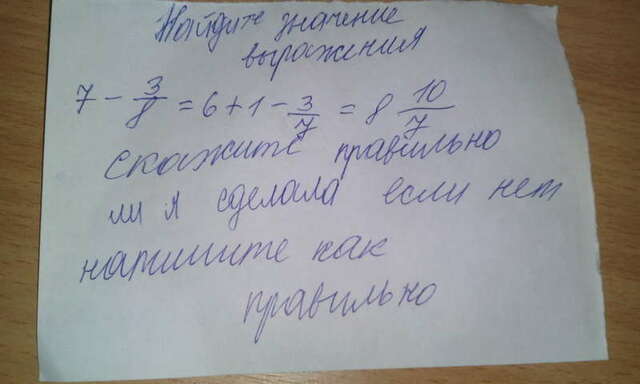 Найдите значение
выражения
7 - 3/8 = 6 + 1 - 3/7 = 8 10/7
скажите правильно
ли я сделала если нет
напишите как
правильно